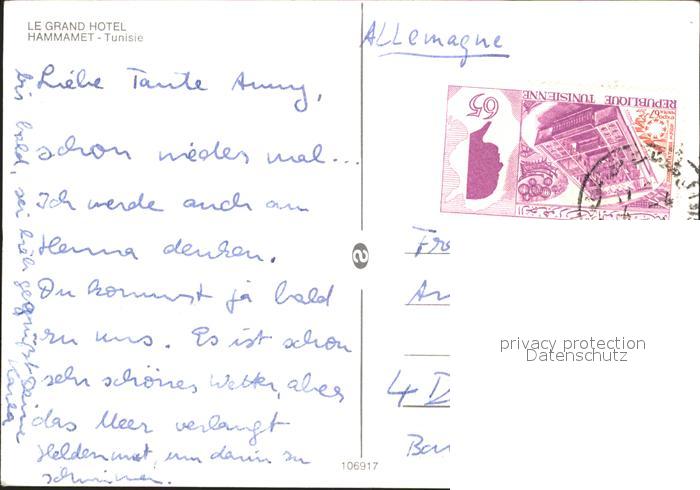 LE GRAND HOTEL
HAMMAMET - Tunisie
Liebe Tante Anny,
schon wieder mal...
Ich werde auch an
Henna denken.
Du kommst ja bald
zu uns. Es ist schon
sehr schönes Wetter, aber
das Meer verlangt
Heldenmut, um darin zu
schwimmen.
bis bald, sei lieb gegrüßt Deine
Karla
106917
ALLemagne
REPUBLIQUE TUNISIENNE
65
expo 67
Fra
An
4 D
Bon
privacy protection
Datenschutz